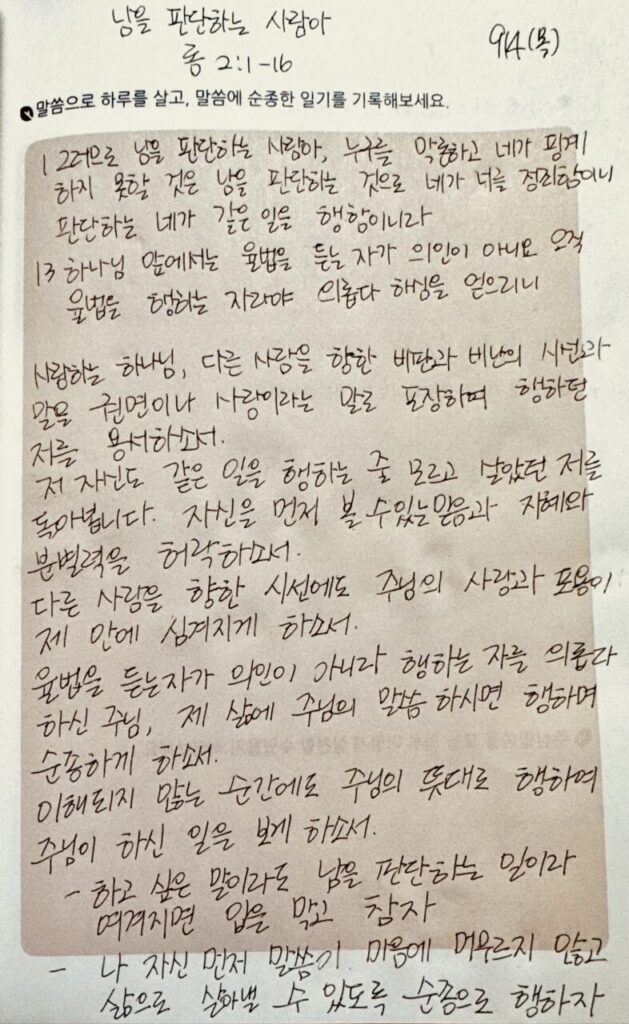 남을 판단하는 사람아
롬 2:1-16
9/4(목)
말씀으로 하루를 살고, 말씀에 순종한 일기를 기록해보세요.
1 그러므로 남을 판단하는 사람아, 누구를 막론하고 네가 핑계
하지 못할 것은 남을 판단하는 것으로 네가 너를 정죄함이니
판단하는 네가 같은 일을 행함이니라
13 하나님 앞에서는 율법을 듣는 자가 의인이 아니요 오직
율법을 행하는 자라야 의롭다 하심을 얻으리니
사랑하는 하나님, 다른 사람을 향한 비판과 비난의 시선과
말을 권면이나 사랑이라는 말로 포장하며 행하던
저를 용서하소서.
저 자신도 같은 일을 행하는 줄 모르고 살았던 저를
돌아봅니다. 자신을 먼저 볼 수있는 믿음과 지혜와
분별력을 허락하소서.
다른 사람을 향한 시선에도 주님의 사랑과 포용이
제 안에 심겨지게 하소서.
율법을 듣는자가 의인이 아니라 행하는 자를 의롭다
하신 주님, 제 삶에 주님의 말씀 하시면 행하며
순종하게 하소서.
이해되지 않는 순간에도 주님의 뜻대로 행하여
주님이 하신 일을 보게 하소서.
- 하고 싶은 말이라도 남을 판단하는 일이라
여겨지면 입을 막고 참자
- 나 자신 먼저 말씀이 마음에 머무르지 않고
삶으로 살아낼 수 있도록 순종으로 행하자